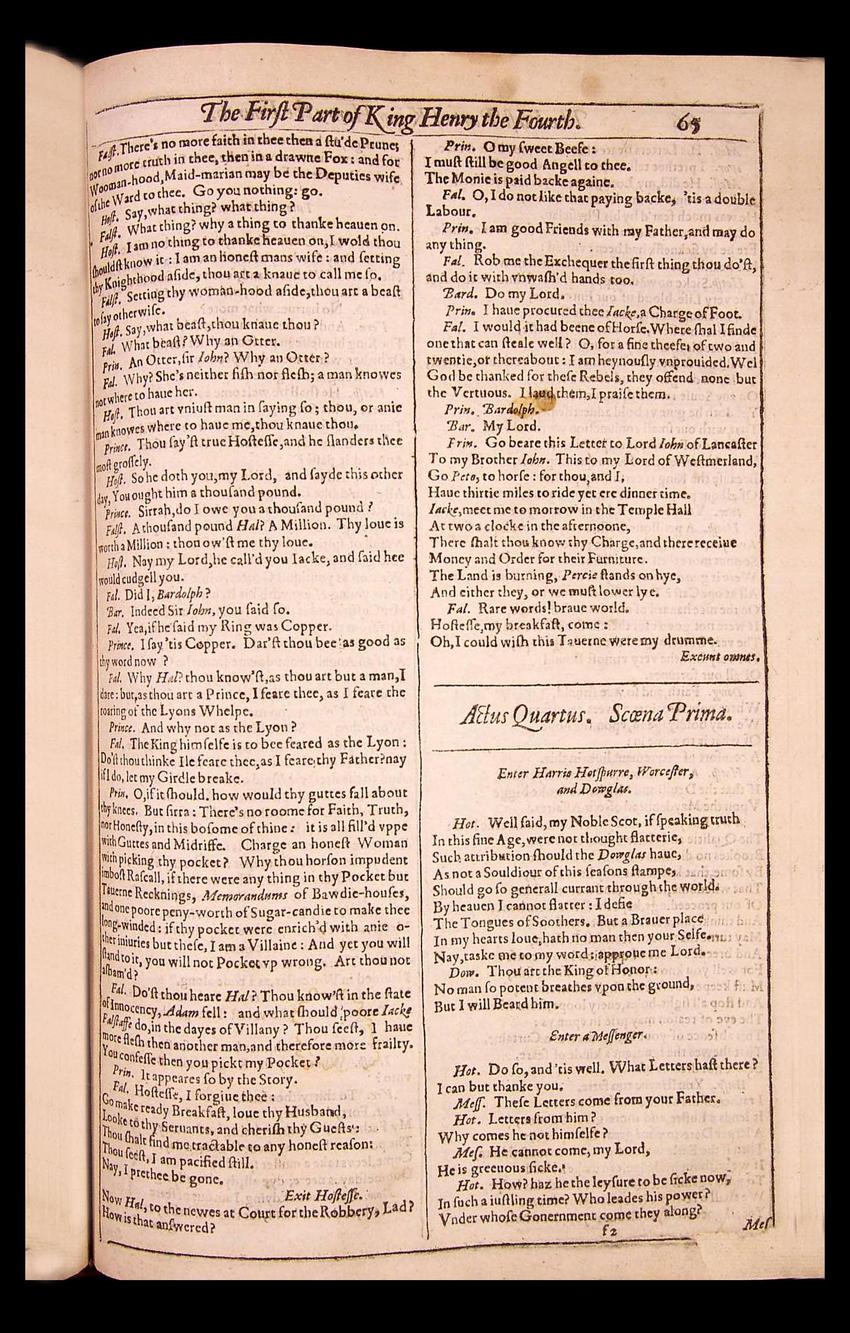 The Firſt Part of King Henry the Fourth. 65
Falſt. There's no more faith in thee then a ſtu'de Prune;
nor no more truth in thee, then in a drawne Fox: and for
Wooman-hood, Maid-marian may be the Deputies wife
of the Ward to thee. Go you nothing: go.
Hoſt. Say, what thing? what thing?
Falſt. What thing? why a thing to thanke heauen on.
Hoſt. I am no thing to thanke heauen on, I wold thou
ſhouldſt know it: I am an honeſt mans wife: and ſetting
thy Knighthood aſide, thou art a knaue to call me ſo.
Falſt. Setting thy woman-hood aſide, thou art a beaſt
to ſay otherwiſe.
Hoſt. Say, what beaſt, thou knaue thou?
Fal. What beaſt? Why an Otter.
Prin. An Otter, ſir Iohn? Why an Otter?
Fal. Why? She's neither fiſh nor fleſh; a man knowes
not where to haue her.
Hoſt. Thou art vniuſt man in ſaying ſo; thou, or anie
man knowes where to haue me, thou knaue thou.
Prince. Thou ſay'ſt true Hoſteſſe, and he ſlanders thee
moſt groſſely.
Hoſt. So he doth you, my Lord, and ſayde this other
day, You ought him a thouſand pound.
Prince. Sirrah, do I owe you a thouſand pound?
Falſt. A thouſand pound Hal? A Million. Thy loue is
worth a Million: thou ow'ſt me thy loue.
Hoſt. Nay my Lord, he call'd you Iacke, and ſaid hee
would cudgell you.
Fal. Did I, Bardolph?
Bar. Indeed Sir Iohn, you ſaid ſo.
Fal. Yea, if he ſaid my Ring was Copper.
Prince. I ſay 'tis Copper. Dar'ſt thou bee as good as
thy word now?
Fal. Why Hal? thou know'ſt, as thou art but a man, I
dare: but, as thou art a Prince, I feare thee, as I feare the
roaring of the Lyons Whelpe.
Prince. And why not as the Lyon?
Fal. The King himſelfe is to bee feared as the Lyon:
Do'ſt thou thinke Ile feare thee, as I feare thy Father? nay
if I do, let my Girdle breake.
Prin. O, if it ſhould, how would thy guttes fall about
thy knees. But ſirra: There's no roome for Faith, Truth,
nor Honeſty, in this boſome of thine: it is all fill'd vppe
with Guttes and Midriffe. Charge an honeſt Woman
with picking thy pocket? Why thou horſon impudent
imboſt Raſcall, if there were any thing in thy Pocket but
Tauerne Recknings, Memorandums of Bawdie-houſes,
and one poore peny-worth of Sugar-candie to make thee
long-winded: if thy pocket were enrich'd with anie o-
ther iniuries but theſe, I am a Villaine: And yet you will
ſtand to it, you will not Pocket vp wrong. Art thou not
aſham'd?
Fal. Do'ſt thou heare Hal? Thou know'ſt in the ſtate
of Innocency, Adam fell: and what ſhould poore Iacke
Falſtaffe do, in the dayes of Villany? Thou ſeeſt, I haue
more fleſh then another man, and therefore more frailty.
You confeſſe then you pickt my Pocket?
Prin. It appeares ſo by the Story.
Fal. Hoſteſſe, I forgiue thee:
Go make ready Breakfaſt, loue thy Husband,
Looke to thy Seruants, and cheriſh thy Gueſts:
Thou ſhalt find me tractable to any honeſt reaſon:
Thou ſeeſt, I am pacified ſtill.
Nay, I prethee be gone.
Exit Hoſteſſe.
Now Hal, to the newes at Court for the Robbery, Lad?
How is that anſwered?
Prin. O my ſweet Beefe:
I muſt ſtill be good Angell to thee.
The Monie is paid backe againe.
Fal. O, I do not like that paying backe, 'tis a double
Labour.
Prin. I am good Friends with my Father, and may do
any thing.
Fal. Rob me the Exchequer the firſt thing thou do'ſt,
and do it with vnwaſh'd hands too.
Bard. Do my Lord.
Prin. I haue procured thee Iacke, a Charge of Foot.
Fal. I would it had beene of Horſe. Where ſhal I finde
one that can ſteale well? O, for a fine theefe, of two and
twentie, or thereabout: I am heynouſly vnprouided. Wel
God be thanked for theſe Rebels, they offend none but
the Vertuous. I laud them, I praiſe them.
Prin. Bardolph.
Bar. My Lord.
Prin. Go beare this Letter to Lord Iohn of Lancaſter
To my Brother Iohn. This to my Lord of Weſtmerland,
Go Peto, to horſe: for thou, and I,
Haue thirtie miles to ride yet ere dinner time.
Iacke, meet me to morrow in the Temple Hall
At two a clocke in the afternoone,
There ſhalt thou know thy Charge, and there receiue
Money and Order for their Furniture.
The Land is burning, Percie ſtands on hye,
And either they, or we muſt lower lye.
Fal. Rare words! braue world.
Hoſteſſe, my breakfaſt, come:
Oh, I could wiſh this Tauerne were my drumme.
Exeunt omnes.
Actus Quartus. Scœna Prima.
Enter Harrie Hotſpurre, Worceſter,
and Dowglas.
Hot. Well ſaid, my Noble Scot, if ſpeaking truth
In this fine Age, were not thought flatterie,
Such attribution ſhould the Dowglas haue,
As not a Souldiour of this ſeaſons ſtampe,
Should go ſo generall currant through the world.
By heauen I cannot flatter: I defie
The Tongues of Soothers. But a Brauer place
In my hearts loue, hath no man then your Selfe.
Nay, taske me to my word: approue me Lord.
Dow. Thou art the King of Honor:
No man ſo potent breathes vpon the ground,
But I will Beard him.
Enter a Meſſenger.
Hot. Do ſo, and 'tis well. What Letters haſt there?
I can but thanke you.
Meſſ. Theſe Letters come from your Father.
Hot. Letters from him?
Why comes he not himſelfe?
Meſ. He cannot come, my Lord,
He is greeuous ſicke.
Hot. How? haz he the leyſure to be ſicke now,
In ſuch a iuſtling time? Who leades his power?
Vnder whoſe Gouernment come they along?
f2 Meſ